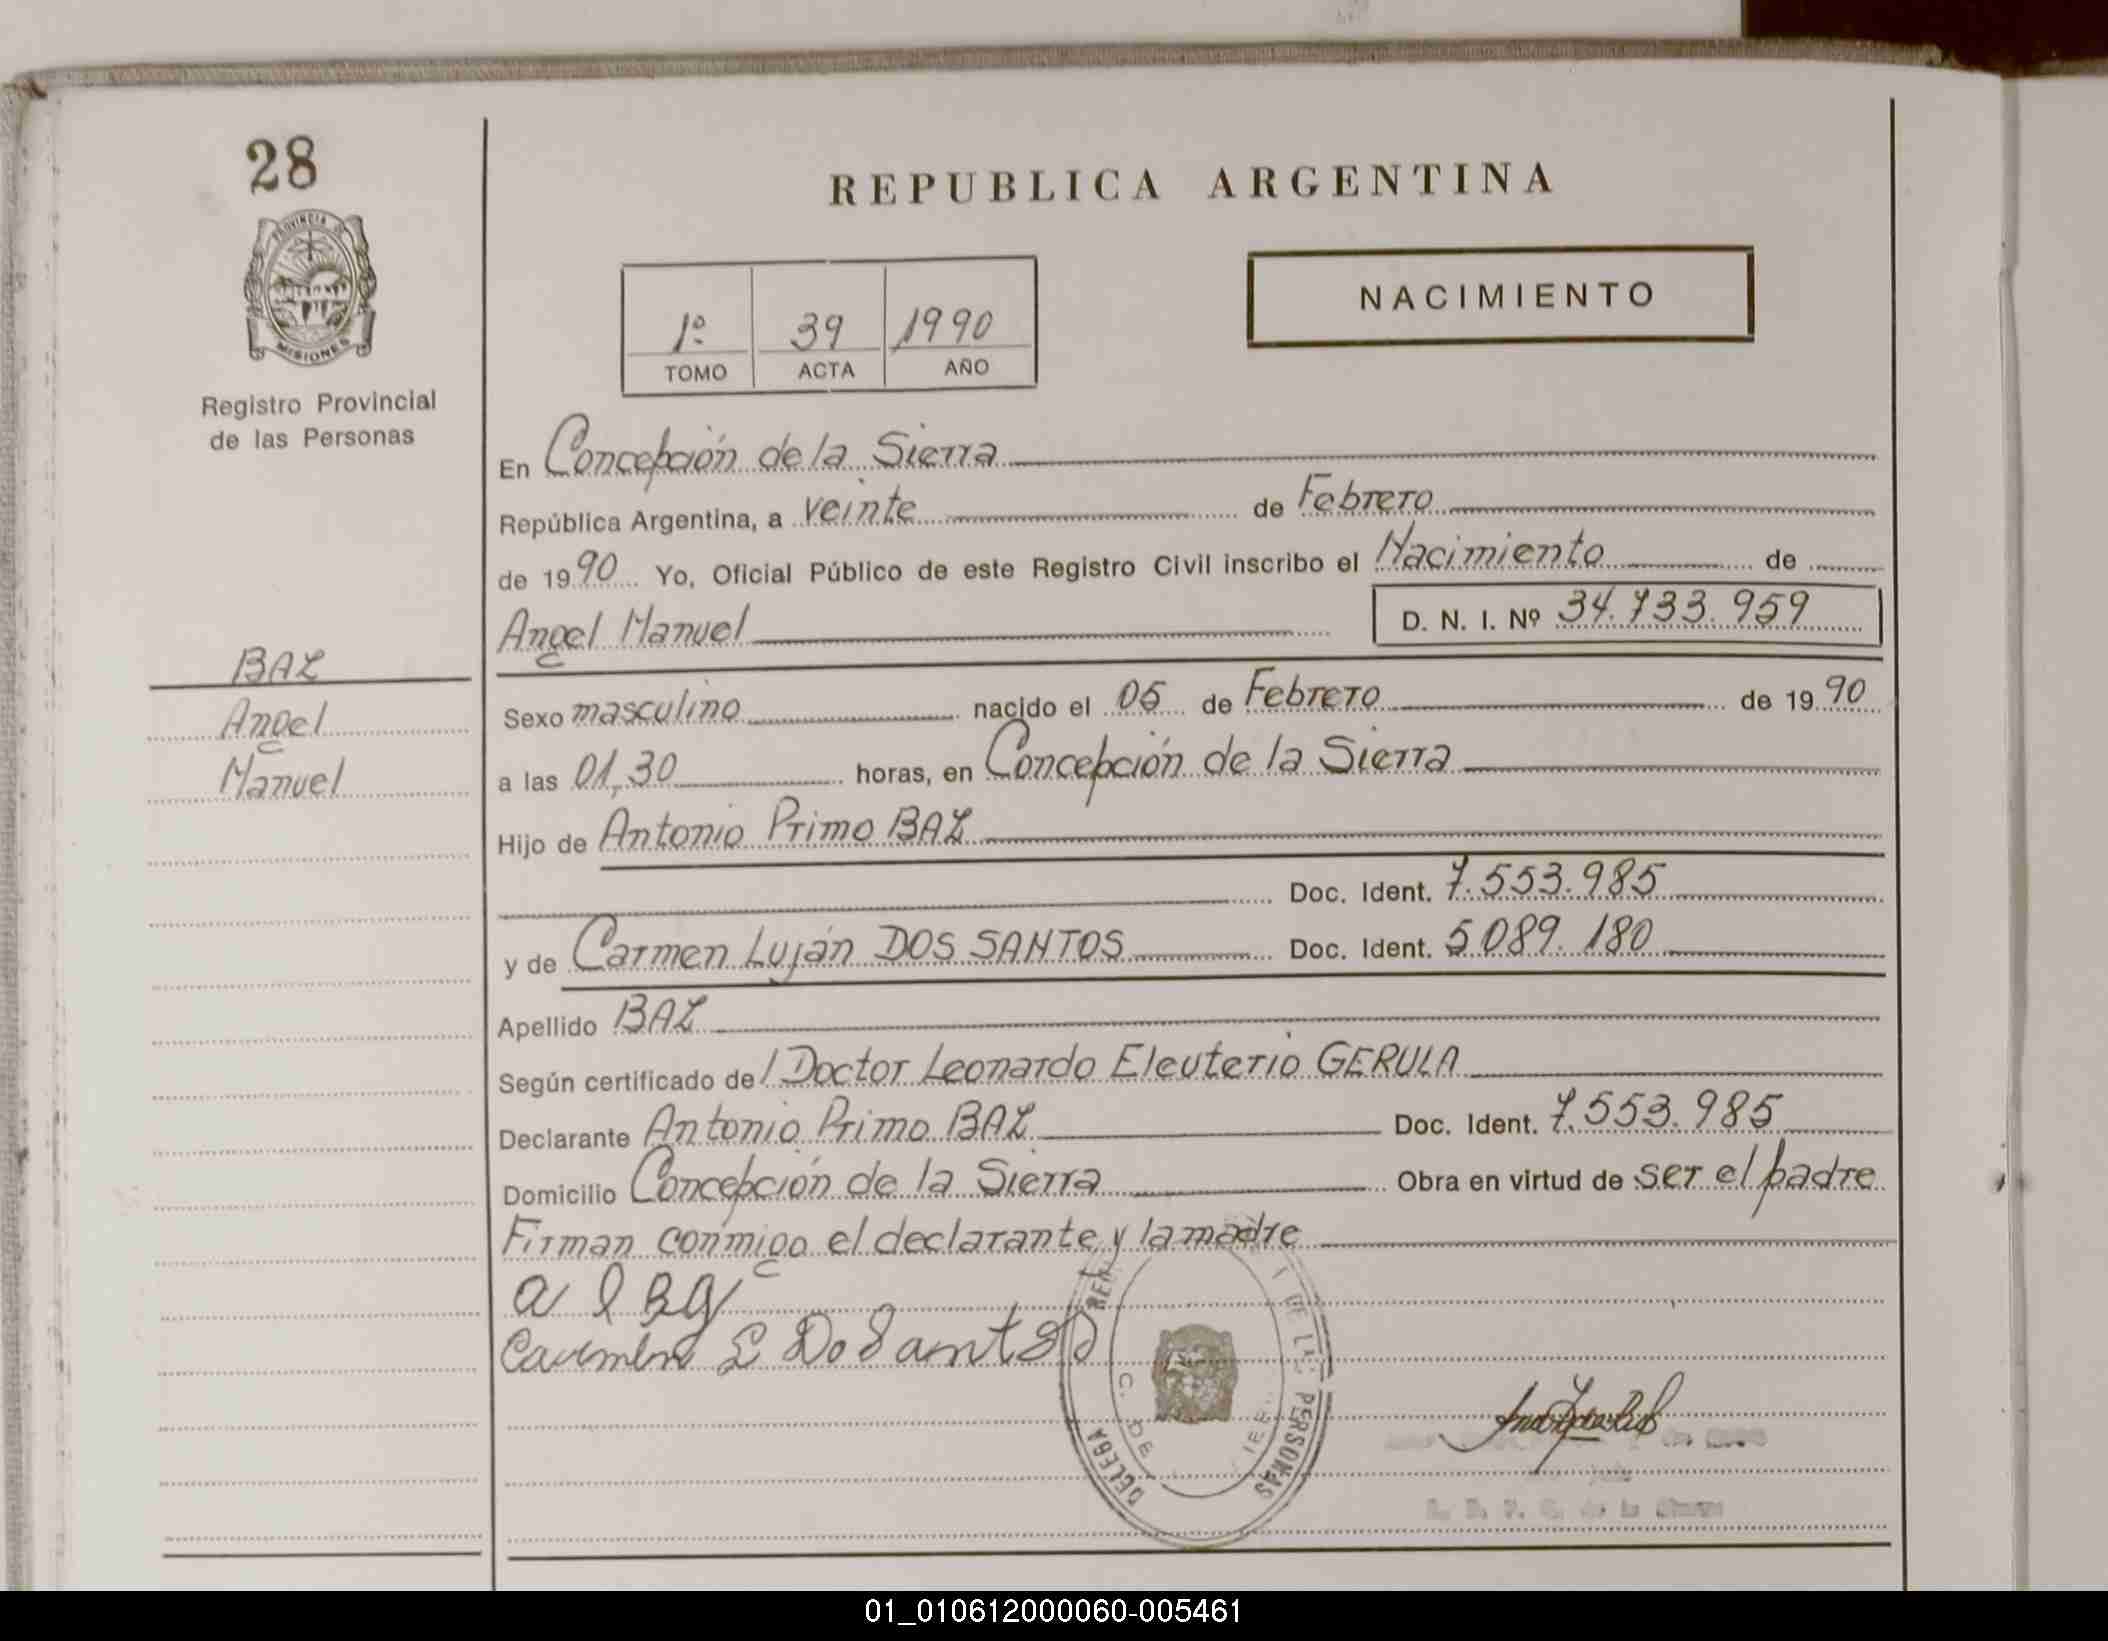 28
PROVINCIA DE
MISIONES
Registro Provincial
de las Personas
BAZ
Angel
Manuel
REPUBLICA ARGENTINA
NACIMIENTO
1º 39 1990
TOMO ACTA AÑO
En Concepción de la Sierra
República Argentina, a veinte de Febrero
de 1990 Yo, Oficial Público de este Registro Civil inscribo el Nacimiento de
Angel Manuel D. N. I. Nº 34.733.959
Sexo masculino nacido el 05 de Febrero de 1990
a las 01,30 horas, en Concepción de la Sierra
Hijo de Antonio Primo BAZ
Doc. Ident. 7.553.985
y de Carmen Luján DOS SANTOS Doc. Ident. 5.089.180
Apellido BAZ
Según certificado del Doctor Leonardo Eleuterio GERULA
Declarante Antonio Primo BAZ Doc. Ident. 7.553.985
Domicilio Concepción de la Sierra Obra en virtud de ser el padre
Firman conmigo el declarante y la madre
Carmen L Do Santos
DE LAS PERSONAS
01_010612000060-005461